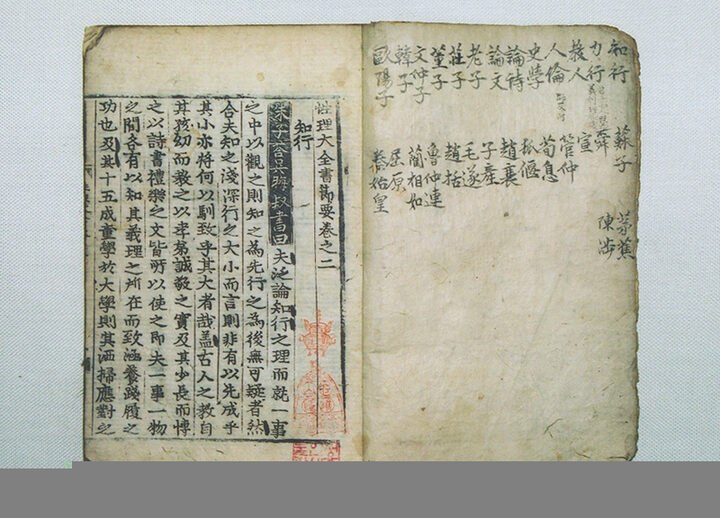 知行
力行
敎人
人倫
史學
論詩
論文
老子
莊子
董子
文仲子
韓子
歐陽子
蘇子
舜
宣
管仲
荀息
狐偃
趙襄
子産
毛遂
趙括
魯仲連
藺相如
屈原
秦始皇
茅蕉
陳涉
性理大全書節要卷之二
知行
朱子答吳晦叔書曰夫泛論知行之理而就一事
之中以觀之則知之為先行之為後無可疑者然
合夫知之淺深行之大小而言則非有以先成乎
其小亦將何以馴致乎其大者哉盖古人之教自
其孩幼而教之以孝弟誠敬之實及其少長而博
之以詩書禮樂之文皆所以使之即夫一事一物
之間各有以知其義理之所在而致涵養踐履之
功也及其十五成童學於大學則其洒掃應對之